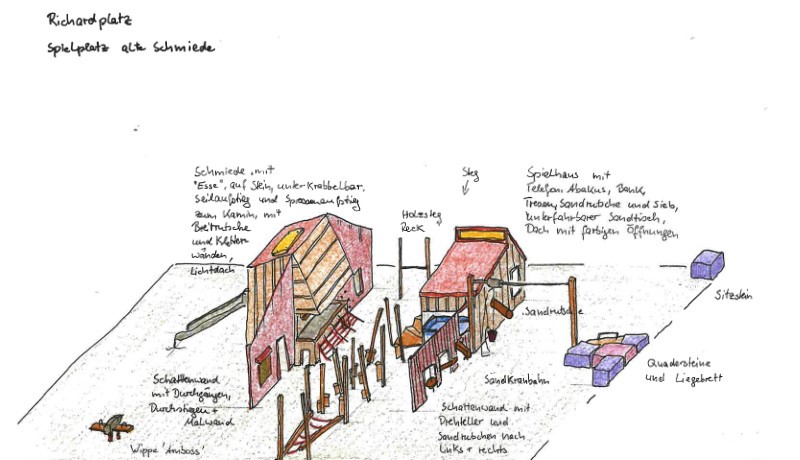 Richardplatz
Spielplatz alte Schmiede
Schmiede mit
"Esse", auf Stein, unterkrabbelbar,
Seilaufstieg und Sprossenaufstieg
zum Kamin, mit
Breitrutsche
und Kletter
wänden,
Lichtdach
Holzsteg
Reck
Steg
Spielhaus mit
Telefon, Abakus, Bank,
Tresen, Sandrutsche und Sieb,
unterfahrbarer Sandtisch,
Dach mit farbigen Öffnungen
Sitzstein
Sandrutsche
Quadersteine
und Liegebrett
Sandkranbahn
Schattenwand
mit Durchgängen,
Durchstiegen +
Malwand
Schattenwand mit
Drehteller und
Sandrutschen nach
Links + rechts
Wippe 'Amboss'